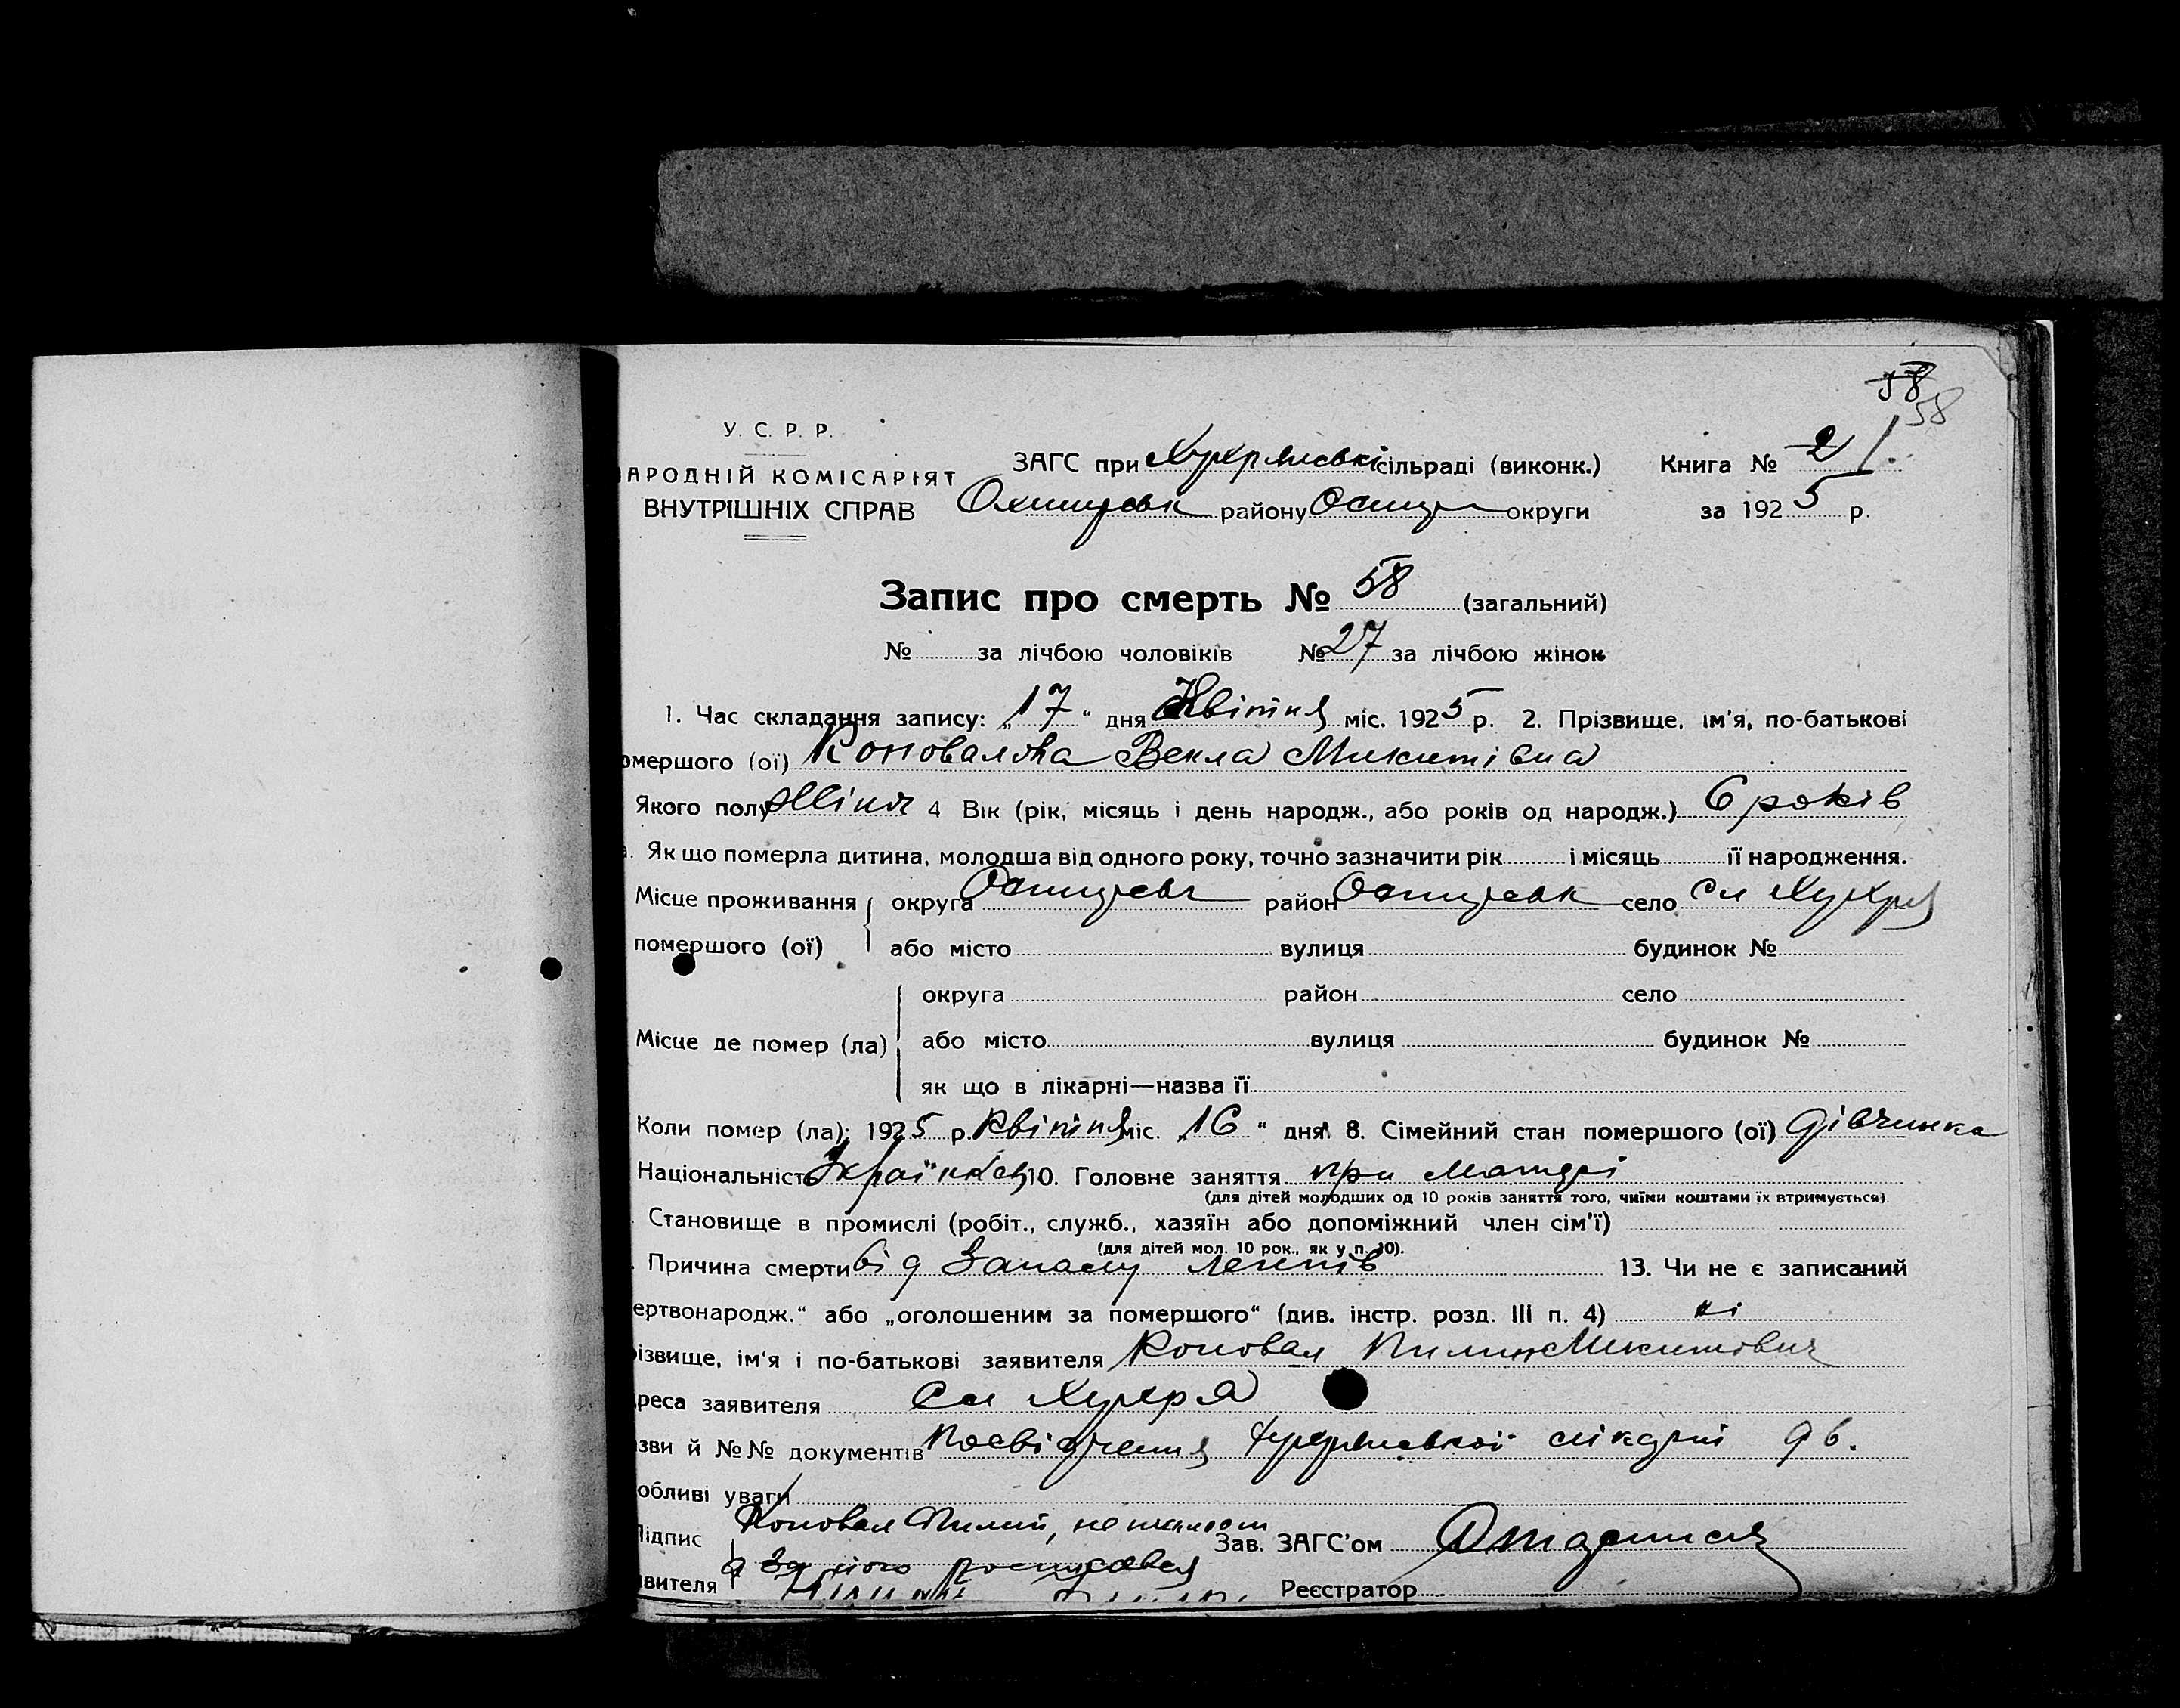 58
58
У. С. Р. Р.
АРОДНІЙ КОМІСАРІЯТ
ВНУТРІШНІХ СПРАВ
ЗАГС при Хухрянські сільраді (виконк.) Книга № 2 1.
Охтирськ району Охтир округи за 1925 р.
Запис про смерть № 58 (загальний)
№ за лічбою чоловіків № 27 за лічбою жінок
1. Час складання запису: „17“ дня Квітня міс. 1925 р. 2. Прізвище, ім'я, по-батькові
омершого (ої) Коновалова Векла Микитівна
Якого полу Жіноч 4 Вік (рік, місяць і день народж., або років од народж.) 6 років
а. Як що померла дитина, молодша від одного року, точно зазначити рік і місяць її народження.
Місце проживання округа Охтирськ район Охтирськ село Сл Хухря
помершого (ої) або місто вулиця будинок №
округа район село
Місце де помер (ла) або місто вулиця будинок №
як що в лікарні—назва її
Коли помер (ла): 1925 р. Квітня міс. „16“ дня 8. Сімейний стан помершого (ої) дівчинка
Національність Українка 10. Головне заняття при Матері
(для дітей молодших од 10 років заняття того, чиїми коштами їх втримується).
Становище в промислі (робіт., служб., хазяїн або допоміжний член сім'ї)
(для дітей мол. 10 рок., як у п. 10).
Причина смерти від Запалу Легенів 13. Чи не є записаний
ертвонародж.“ або „оголошеним за помершого“ (див. інстр. розд. III п. 4) ні
ізвище, ім'я і по-батькові заявителя Коновал Пилип Микитович
реса заявителя Сл Хухря
зви й №№ документів Посвідчення Хухрянської лікарні 96.
обливі уваги
Підпис Коновал Пилип, не
а За його росписався Зав. ЗАГС'ом
явителя Реєстратор